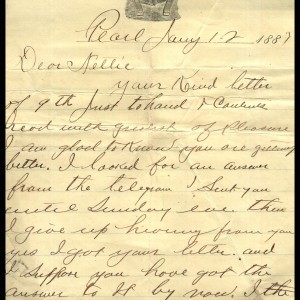 Pearl Jany 12 1887
Dear Nellie
your Kind letter
of 9th Just to hand &
read with of Pleasure
I am glad to Know you are getting
better. I looked for an answer
from the telegram I Sent you
until Sunday eve then
I give up hearing from you
yes I got your letter. and
I Suppose you have got the
answer to It by now. I